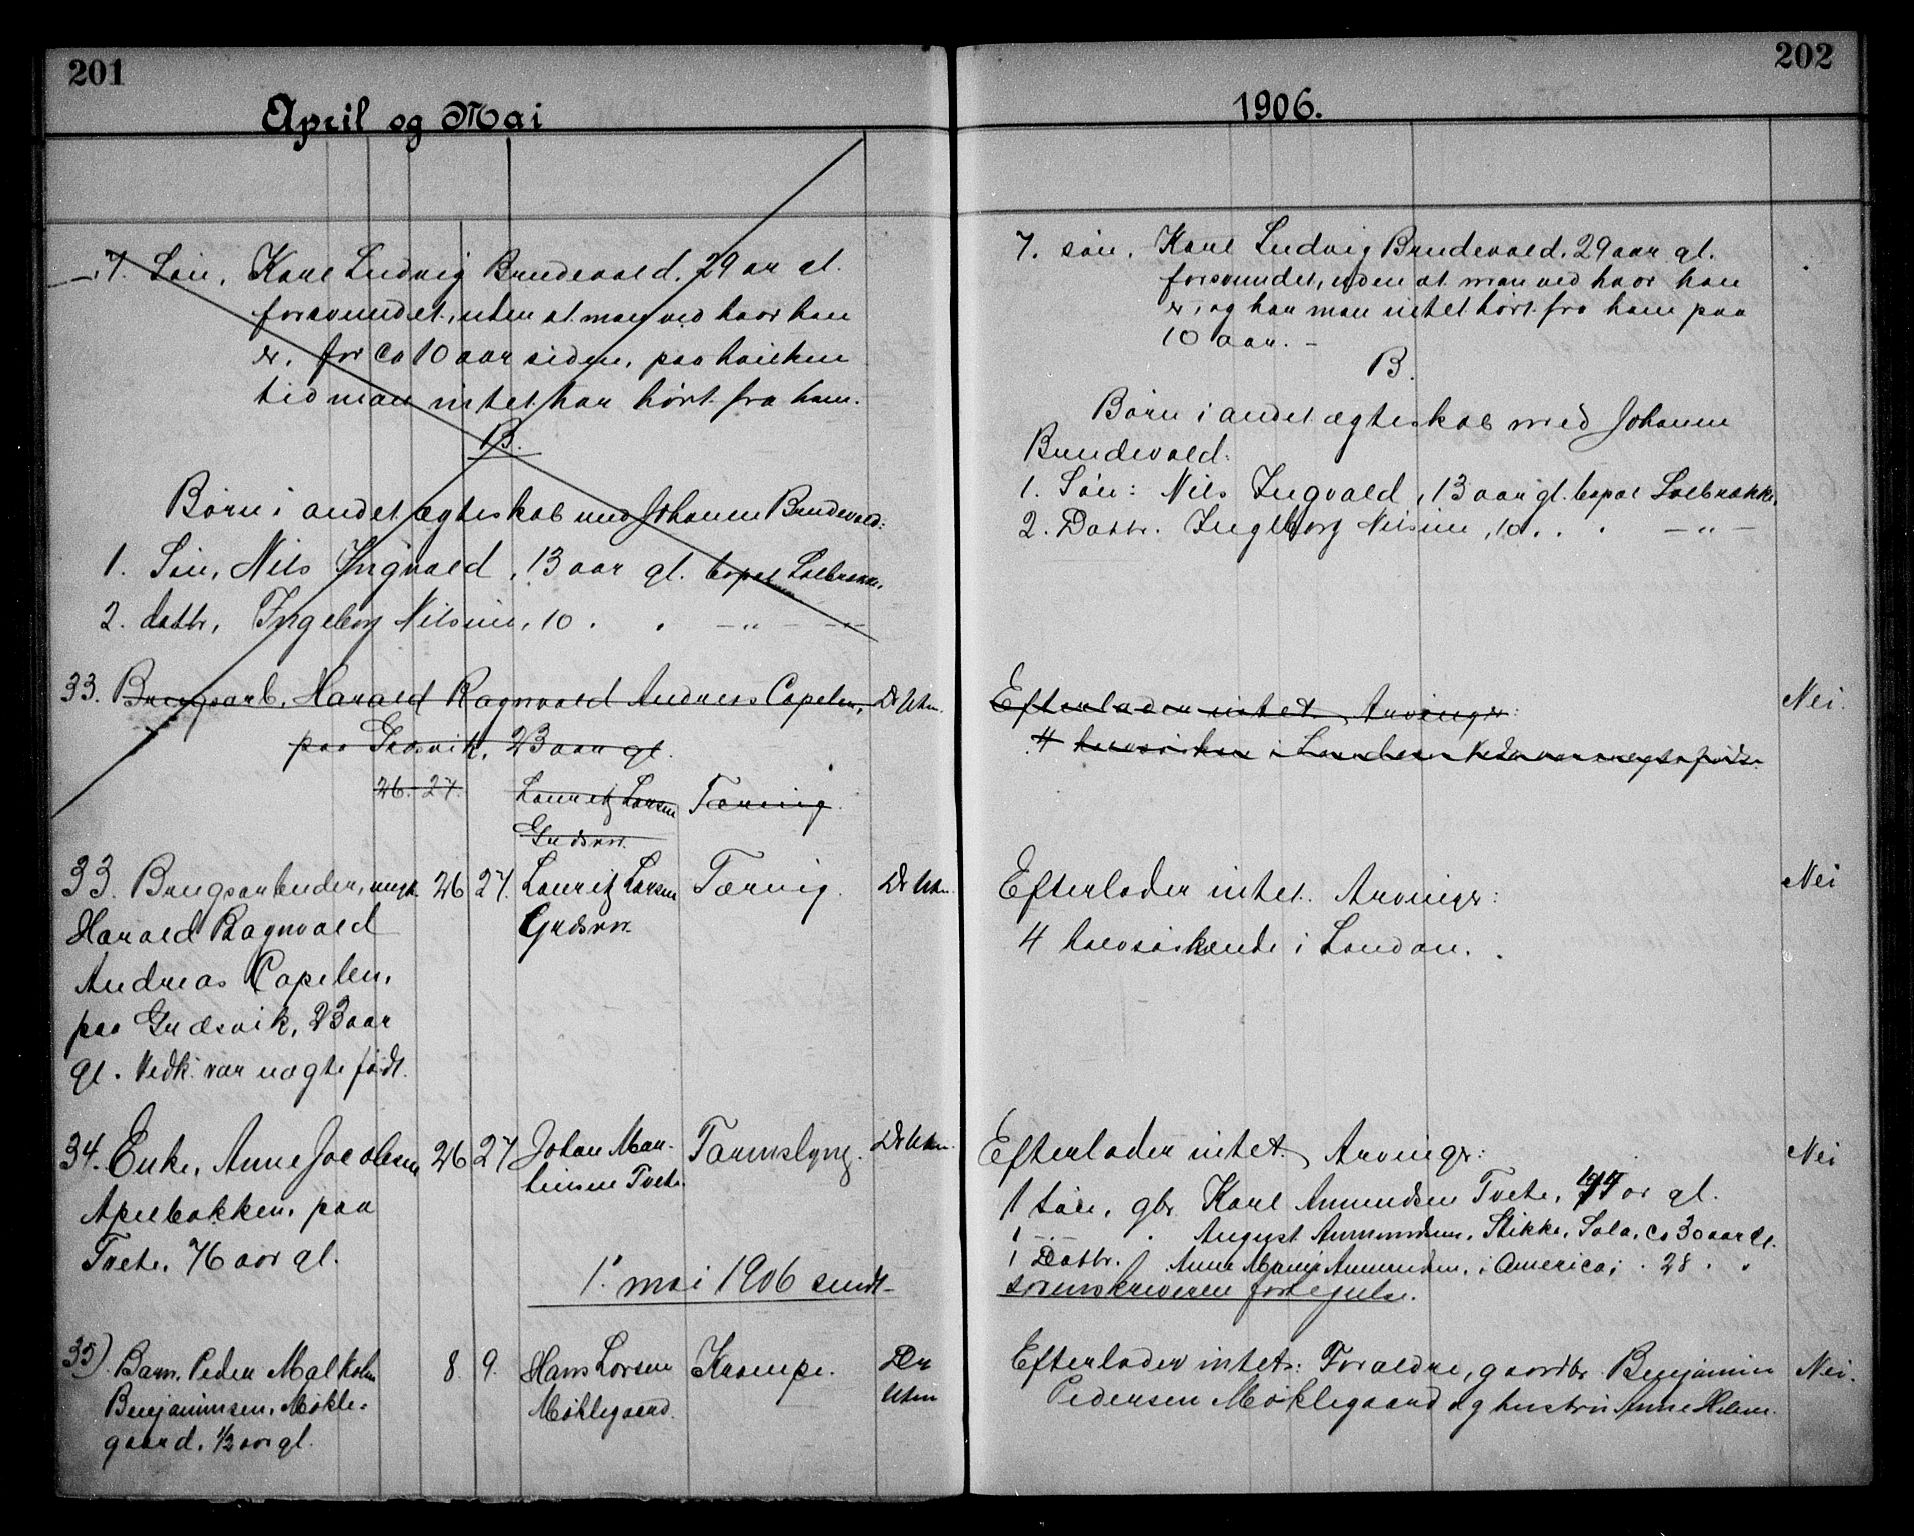 201
April og Mai
7. Søn, Karl Ludvig Brudevold, 29 aar gl.
forsvundet, uden at man ved hvor han
er, for ca 10 aar siden, paa hvilken
tid man intet har hørt fra ham.
B.
Børn i andet ægteskab med Johanne Brudevold:
1. Søn, Nils Ingvald, 13 aar gl. bopæl Solbrække,
2. datter, Ingeborg Nilsine, 10 . . — " — — " —
33. Brugsarb. Harald Ragnvald Andreas Capelen, Dr Utne.
paa Gudsvik, 23 aar gl.
26. 27. Lauritz Larsen Tæring.
Gudsvik.
33. Brugsarbeider, ungk. 26 27. Lauritz Larsen Tæring. Dr Utne.
Harald Ragnvald Gudsvik.
Andreas Capelen,
paa Gudsvik, 23 aar
gl. Vedk. var uægte født.
34. Enke, Anne Jacobsen 26 27 Johan Mar- Tarmslyng. Dr Utne.
Apelbakken, paa tinsen Tvete.
Tvete, 76 aar gl.
1. mai 1906 sendt
35) Barn, Peder Malkolm 8. 9. Hans Larsen Krampe. Dr
Benjaminsen, Møkle- Møklegaard. Utne
gaard, ½ aar gl.
202
1906.
7. søn, Karl Ludvig Brudevold, 29 aar gl.
forsvundet, uden at man ved hvor han
er, og har man intet hørt fra ham paa
10 aar. —
B.
Børn i andet ægteskab med Johanne
Brudevold:
1. Søn: Nils Ingvald, 13 aar gl. bopæl Solbrække,
2. Datter. Ingeborg Nilsine, 10 . . . — " —
Efterlader intet. Arvinger: Nei.
4 halvsøskende i London. Vedk. var uægte født.
Efterlader intet. Arvinger: Nei
4 halvsøskende i London.
Efterlader intet. Arvinger: Nei
1 søn, gbr. Karl Amundsen Tvete, 44 aar gl.
1 — . August Amundsen, Stikke, Sala, ca 30 aar gl.
1 Datter. Anne Marie Amundsen, i America, . 28 . .
sorenskriveren fortegnelse.
Efterlader intet: Forældre, gaardbr. Benjamin Nei.
Pedersen Møklegaard og hustru Anne Helene.